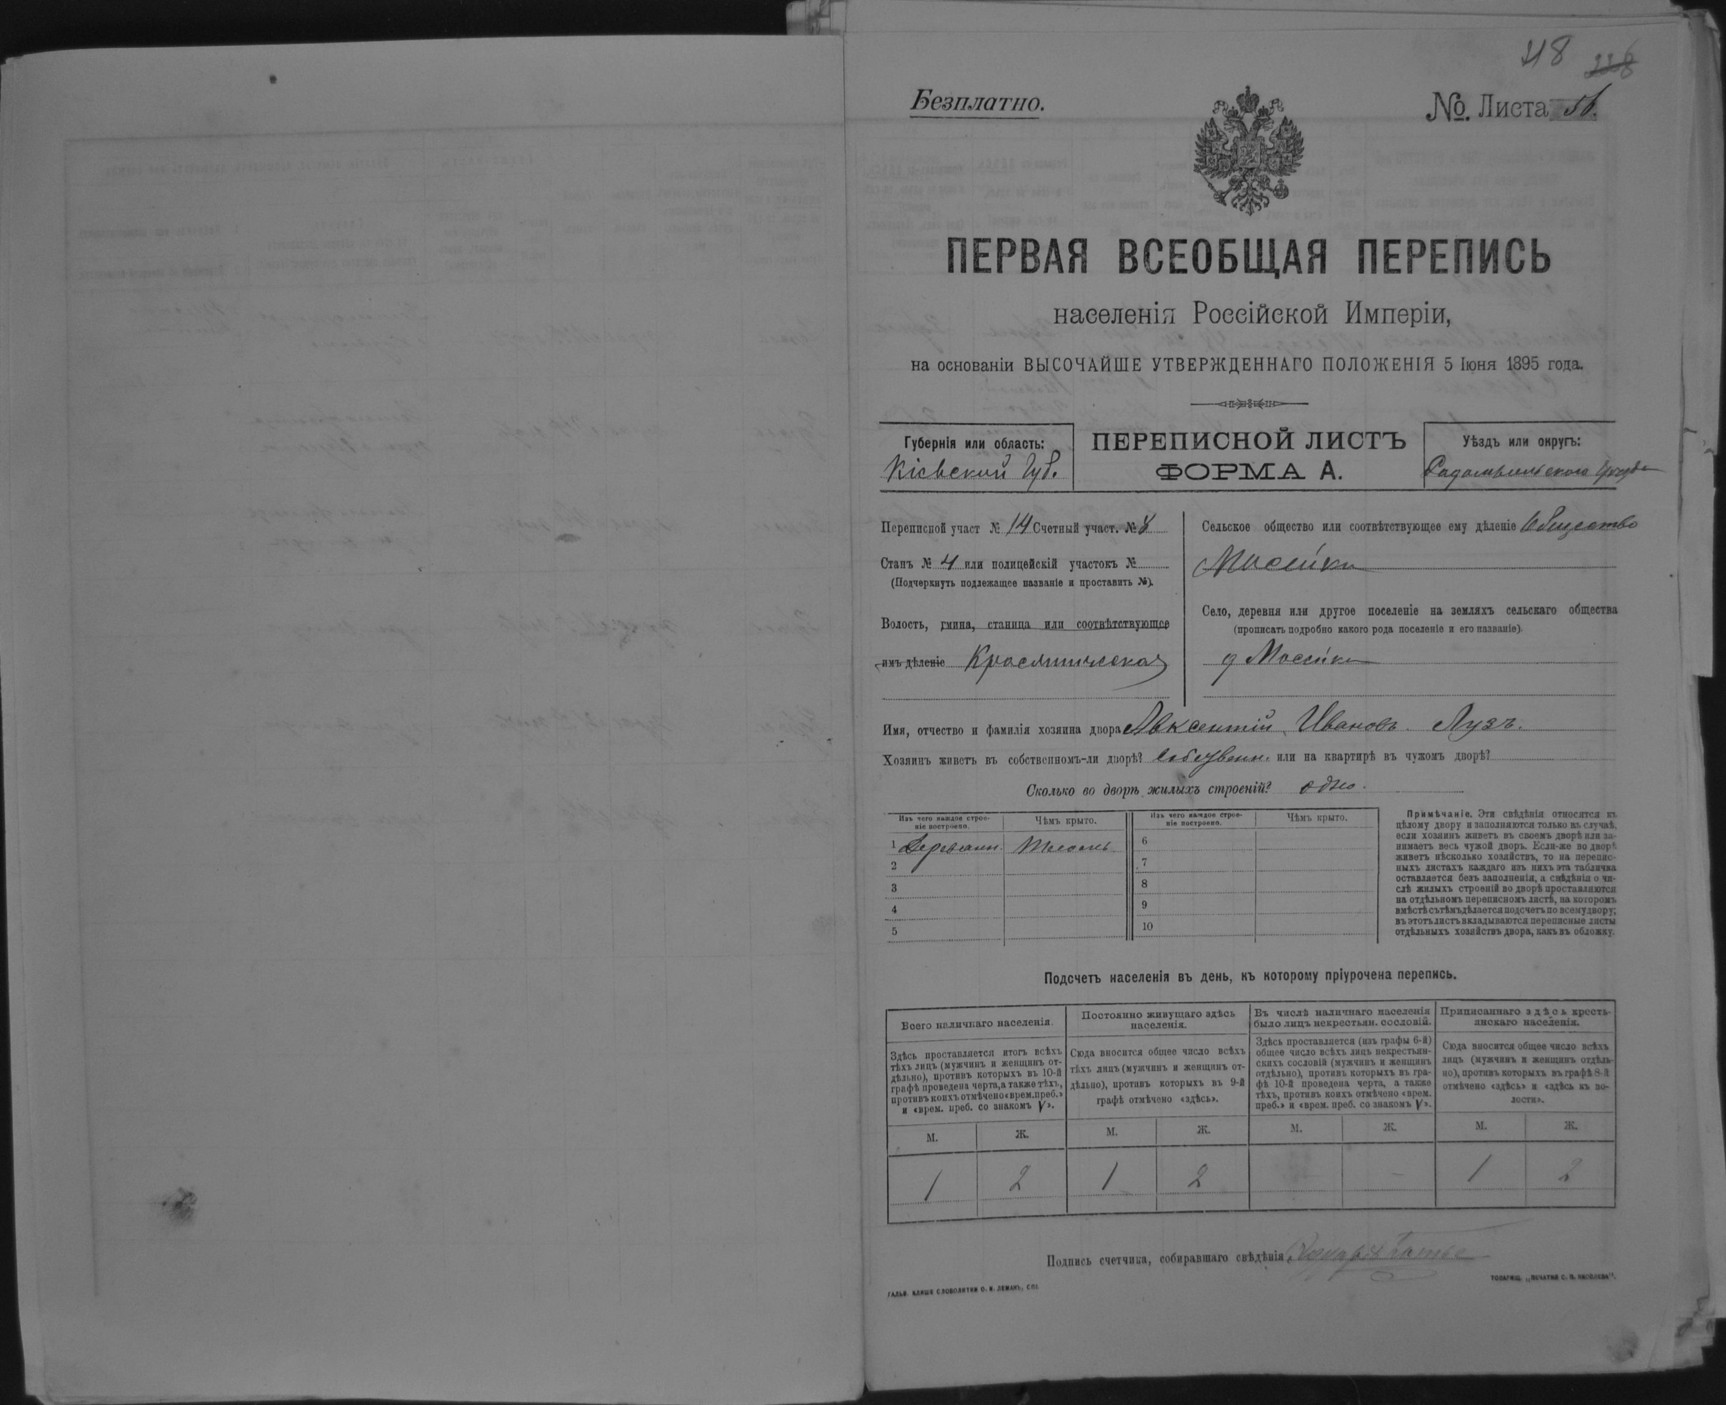 48 228
Безплатно.
№. Листа 56.
ПЕРВАЯ ВСЕОБЩАЯ ПЕРЕПИСЬ
населенія Россійской Имперіи,
на основаніи ВЫСОЧАЙШЕ УТВЕРЖДЕННАГО ПОЛОЖЕНІЯ 5 Іюня 1895 года.
Губернія или область:
Кіевской Губ.
ПЕРЕПИСНОЙ ЛИСТЪ
ФОРМА А.
Уѣздъ или округъ:
Радомысльскаго Уѣзда
Переписной участ № 14 Счетный участ. № 8
Станъ № 4 или полицейскій участокъ №
(Подчеркнуть подлежащее названіе и проставить №).
Волость, гмина, станица или соотвѣтствующее
имъ дѣленіе Красятическая
Сельское общество или соотвѣтствующее ему дѣленіе Общество
Мосейки
Село, деревня или другое поселеніе на земляхъ сельскаго общества
(прописать подробно какого рода поселеніе и его названіе).
д Мосейки
Имя, отчество и фамилія хозяина двора Авксентій Ивановъ Лузъ.
Хозяинъ живетъ въ собственномъ-ли дворѣ? собствен. или на квартирѣ въ чужомъ дворѣ?
Сколько во дворѣ жилыхъ строеній? одно.
Изъ чего каждое строе-
ніе построено.
Чѣмъ крыто.
Изъ чего каждое строе-
ніе построено.
Чѣмъ крыто.
1 Деревянн. 6
2 7
3 8
4 9
5 10
Примѣчаніе. Эти свѣдѣнія относятся къ
цѣлому двору и заполняются только въ случаѣ,
если хозяинъ живетъ въ своемъ дворѣ или за-
нимаетъ весь чужой дворъ. Если-же во дворѣ
живетъ нѣсколько хозяйствъ, то на перепис-
ныхъ листахъ каждаго изъ нихъ эта табличка
оставляется безъ заполненія, а свѣдѣнія о чи-
слѣ жилыхъ строеній во дворѣ проставляются
на отдѣльномъ переписномъ листѣ, на которомъ
вмѣстѣ съ тѣмъ дѣлается подсчетъ по всему двору;
въ этотъ листъ вкладываются переписные листы
отдѣльныхъ хозяйствъ двора, какъ въ обложку.
Подсчетъ населенія въ день, къ которому пріурочена перепись.
Всего наличнаго населенія.
Здѣсь проставляется итогъ всѣхъ
тѣхъ лицъ (мужчинъ и женщинъ от-
дѣльно), противъ которыхъ въ 10-й
графѣ проведена черта, а также тѣхъ,
противъ коихъ отмѣчено «врем. преб.»
и «врем. преб. со знакомъ V».
Постоянно живущаго здѣсь
населенія.
Сюда вносится общее число всѣхъ
тѣхъ лицъ (мужчинъ и женщинъ от-
дѣльно), противъ которыхъ въ 9-й
графѣ отмѣчено «здѣсь».
Въ числѣ наличнаго населенія
было лицъ некрестьян. сословій.
Здѣсь проставляется (изъ графы 6-й)
общее число всѣхъ лицъ некрестьян-
скихъ сословій (мужчинъ и женщинъ
отдѣльно), противъ которыхъ въ гра-
фѣ 10-й проведена черта, а также
тѣхъ, противъ коихъ отмѣчено «врем.
преб.» и «врем. преб. со знакомъ V».
Приписаннаго здѣсь кресть-
янскаго населенія.
Сюда вносится общее число всѣхъ
лицъ (мужчинъ и женщинъ отдѣль-
но), противъ которыхъ въ графѣ 8-й
отмѣчено «здѣсь» и «здѣсь въ во-
лости».
М. Ж. М. Ж. М. Ж. М. Ж.
1 2 1 2 - 1 2
Подпись счетчика, собиравшаго свѣдѣнія